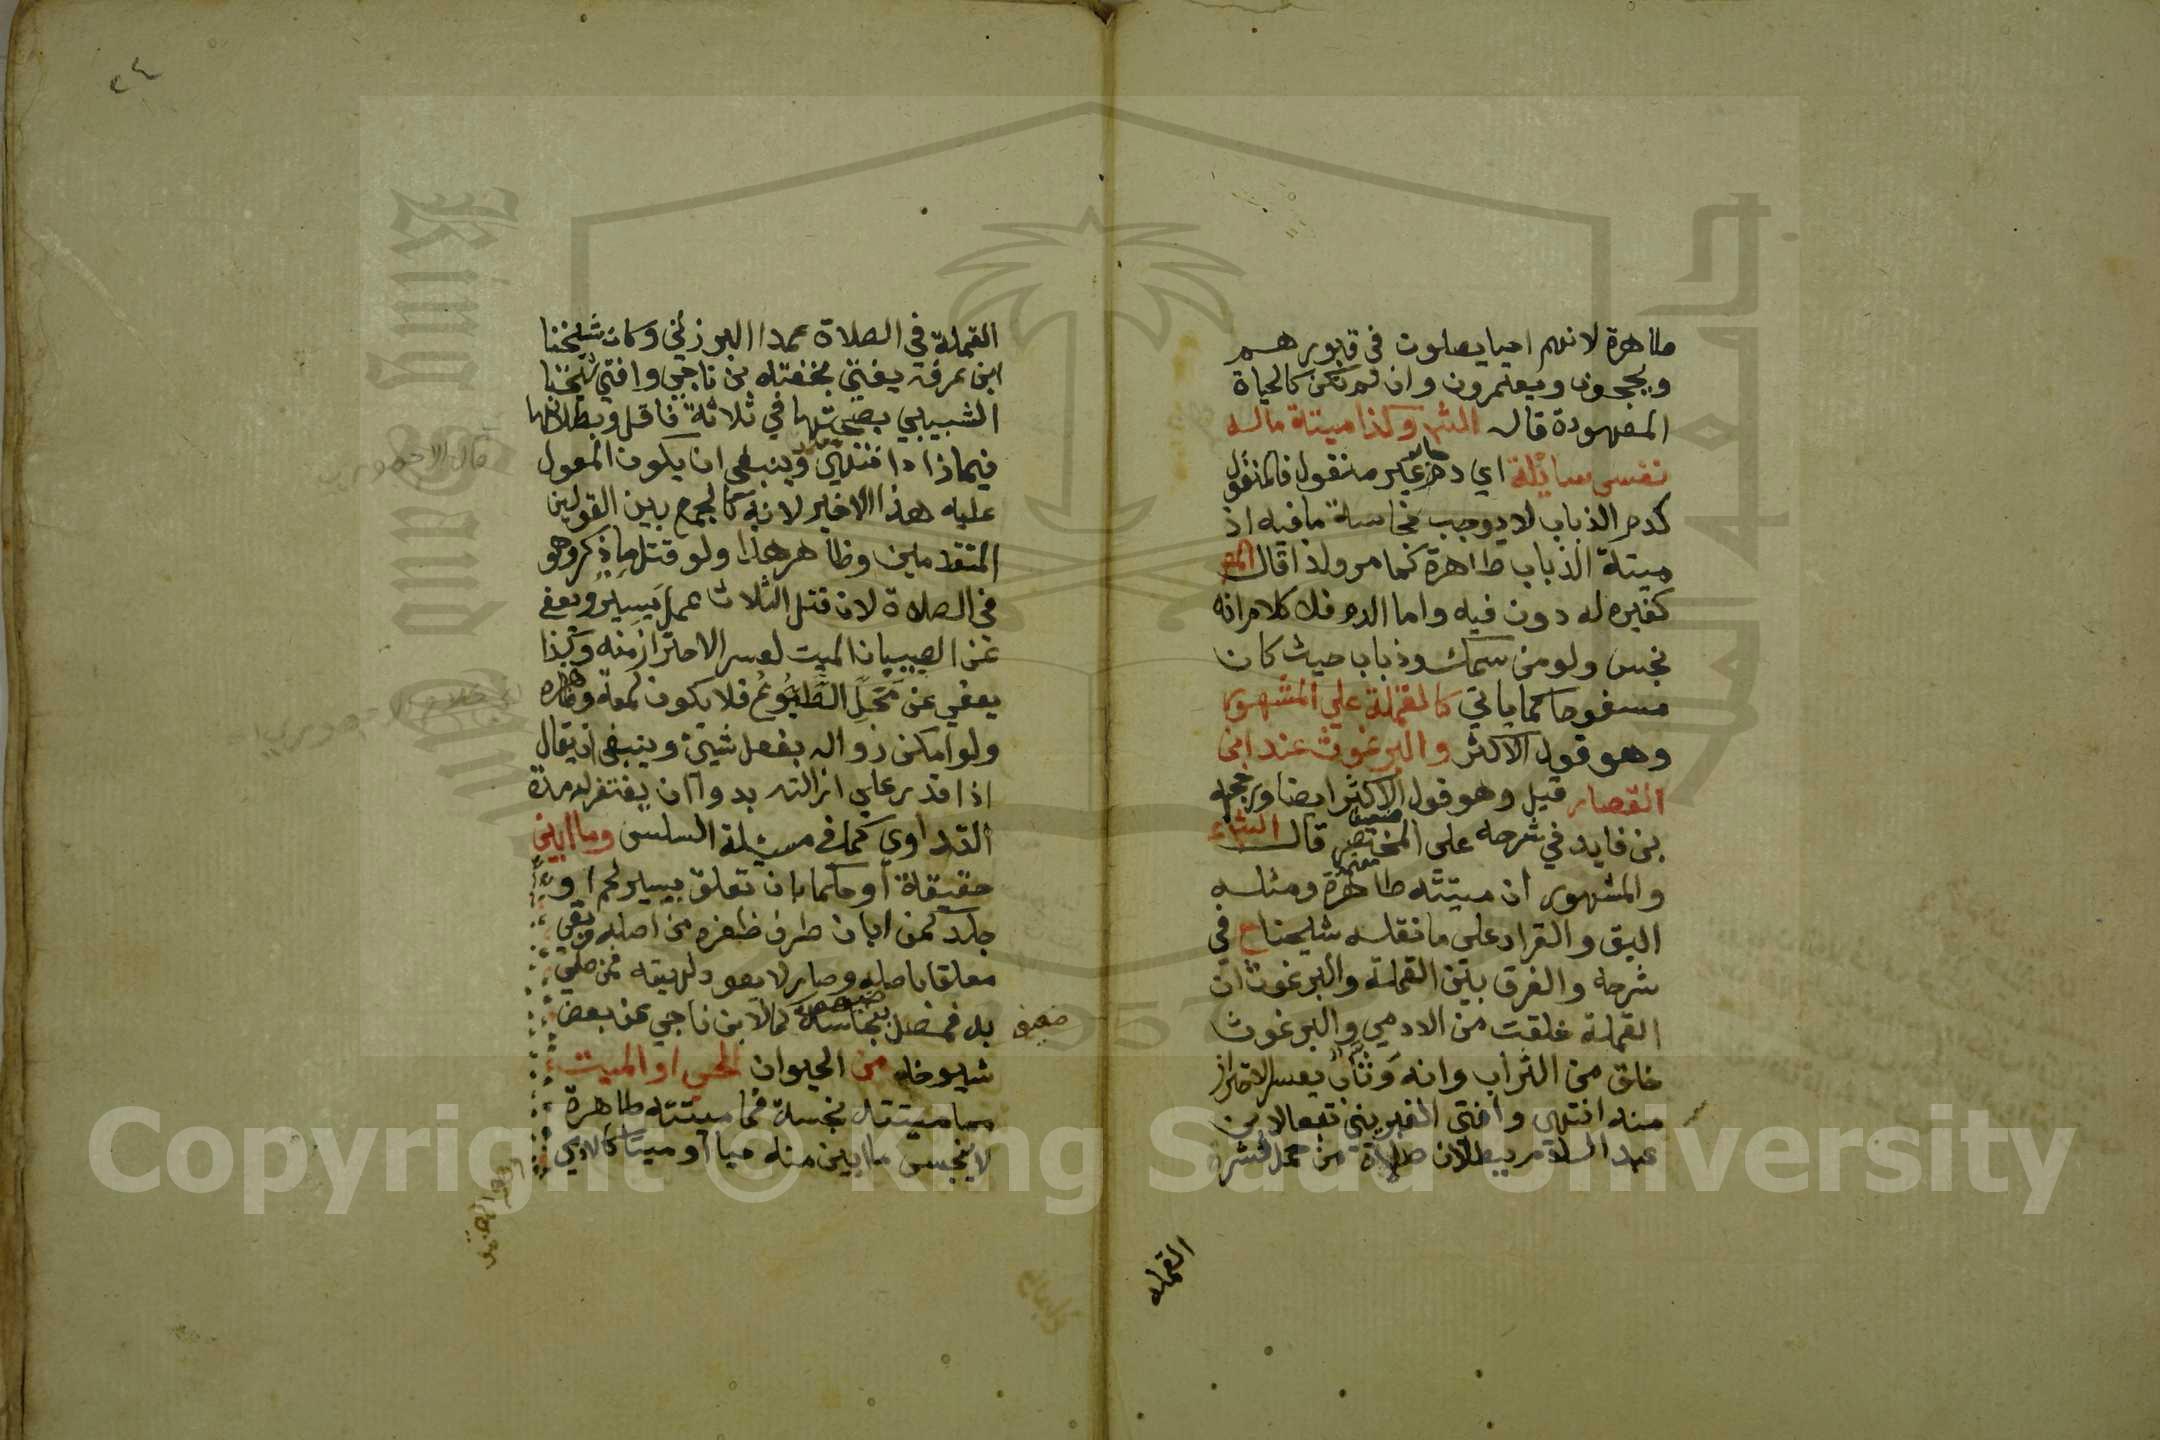 طاهرة لانهم احيا يصلون في قبورهم
ويحجون ويعتمرون وان لم تكن كالحياة
المعهودة قال الش وكذا ميتة ما له
نفس سايلة اي دم غير منقول فالمنقول
كدم الذباب لا يوجب نجاسة ما فيه اذ
ميتة الذباب طاهرة كما مر ولذا قال المص
كغيره له دون فيه واما الدم فلا كلام انه
نجس ولو من سمك وذباب حيث كان
مسفوحا كما ياتي كالقملة علي المشهور
وهو قول الاكثر والبرغوث عند ابن
القصار قيل وهو قول الاكثر ايضا ورجحه
بن فايد في شرحه على المختصر قال
والمشهور ان ميتته طاهرة ومثله
البق والقراد على ما نقله شيخنا ح في
شرحه والفرق بين القملة والبرغوث ان
القملة خلقت من الادمي والبرغوث
خلق من التراب وانه وثاب يعسر الاحتراز
منه انتهى وافتى الغبريني تبعا لابن
عبد السلام ببطلان صلاة من حمل قشر
القملة
٢٤
القملة في الصلاة عمدا البرزلي وكان شيخنا
ابن عرفة يفتي بخفته بن ناجي وافتي شيخنا
الشبيبي بصحتها في ثلاثة فاقل وبطلانها
فيما زاد انتهي وينبغي ان يكون المعول
عليه هذا الاخير لانه كالجمع بين القولين
المتقدمين وظاهر هذا ولو قتلها ذكر وهو
في الصلاة لان قتل الثلاث عمل يسير ويعفي
عن الصيبان الميت لعسر الاحتراز منه وكذا
يعفي عن محل الطبوع فلا يكون لمعة وظاهره
ولو امكن زواله بفعل شيئ وينبغي ان يقال
اذا قدر علي ازالته بدوا ان يغتفر له مدة
التداوي كما في مسئلة السلس وما ابين
حقيقة او حكما بان تعلق بيسير لحم او
جلد كمن ابان طرف ظفره من اصله وبقي
معلقا باصله وصار لا يعود لهيئته فمن صلي
به فمضل بنجاسة كما لابن ناجي عن بعض
ضعيف
شيوخه من الحيوان الحي او الميت
مما ميتته نجسة فما ميتته طاهرة
لا ينجس ما ابين منه حيا او ميتا كالادمي